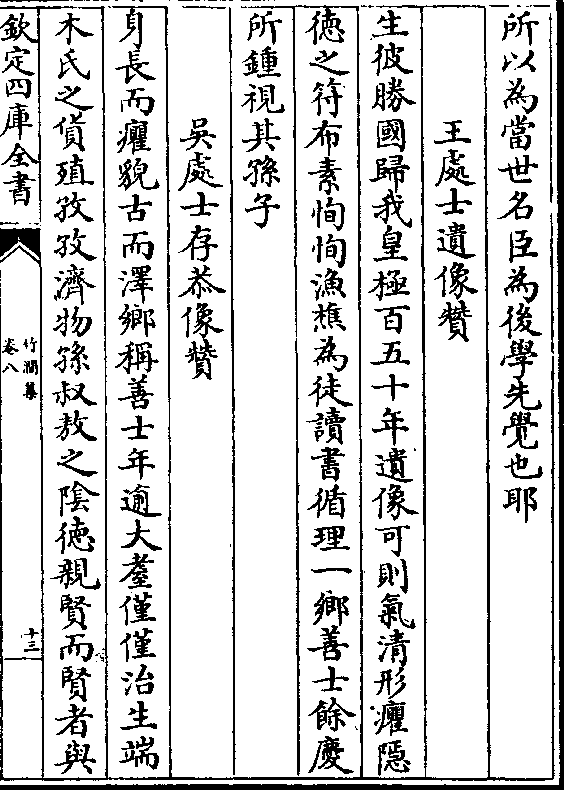 所以為當世名臣為後學先覺也耶
王處士遺像贊
生彼勝國歸我皇極百五十年遺像可則氣清形癯隱
徳之符布素恂恂漁樵為徒讀書循理一鄉善士餘慶
所鍾視其孫子
吳處士存恭像贊
身長而癯貌古而澤鄉稱善士年逾大耋僅僅治生端
木氏之貨殖孜孜濟物孫叔敖之陰徳親賢而賢者與
欽定四庫全書
竹澗集
卷八
十三